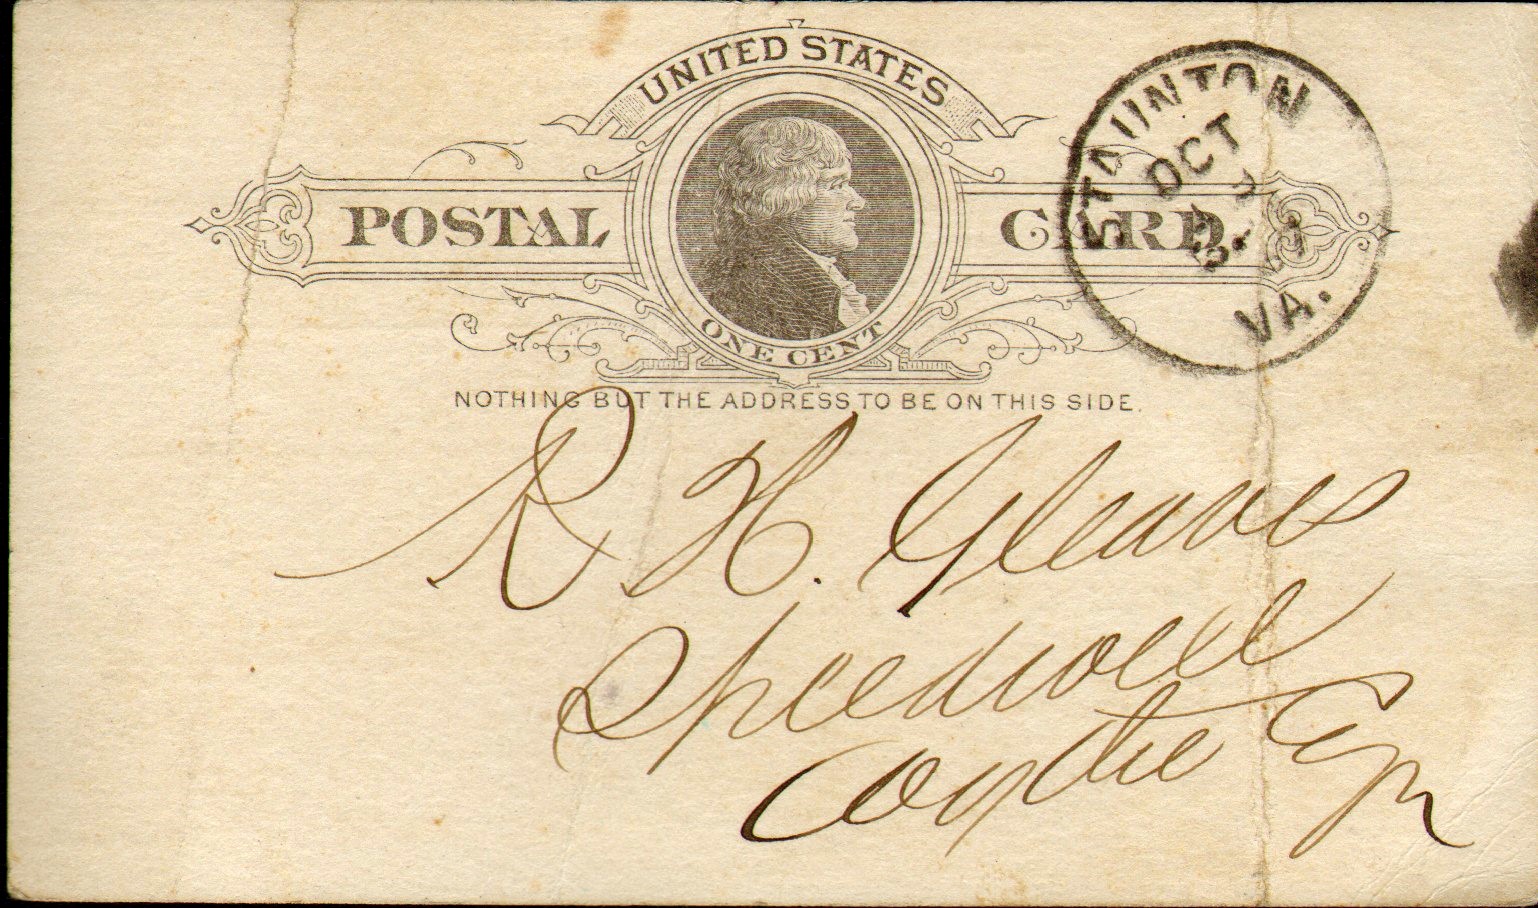 UNITED STATES
POSTAL CARD
ONE CENT
NOTHING BUT THE ADDRESS TO BE ON THIS SIDE.
STAUNTON
OCT
VA.
R. H. Gleaves
Speedwell
Wythe Co